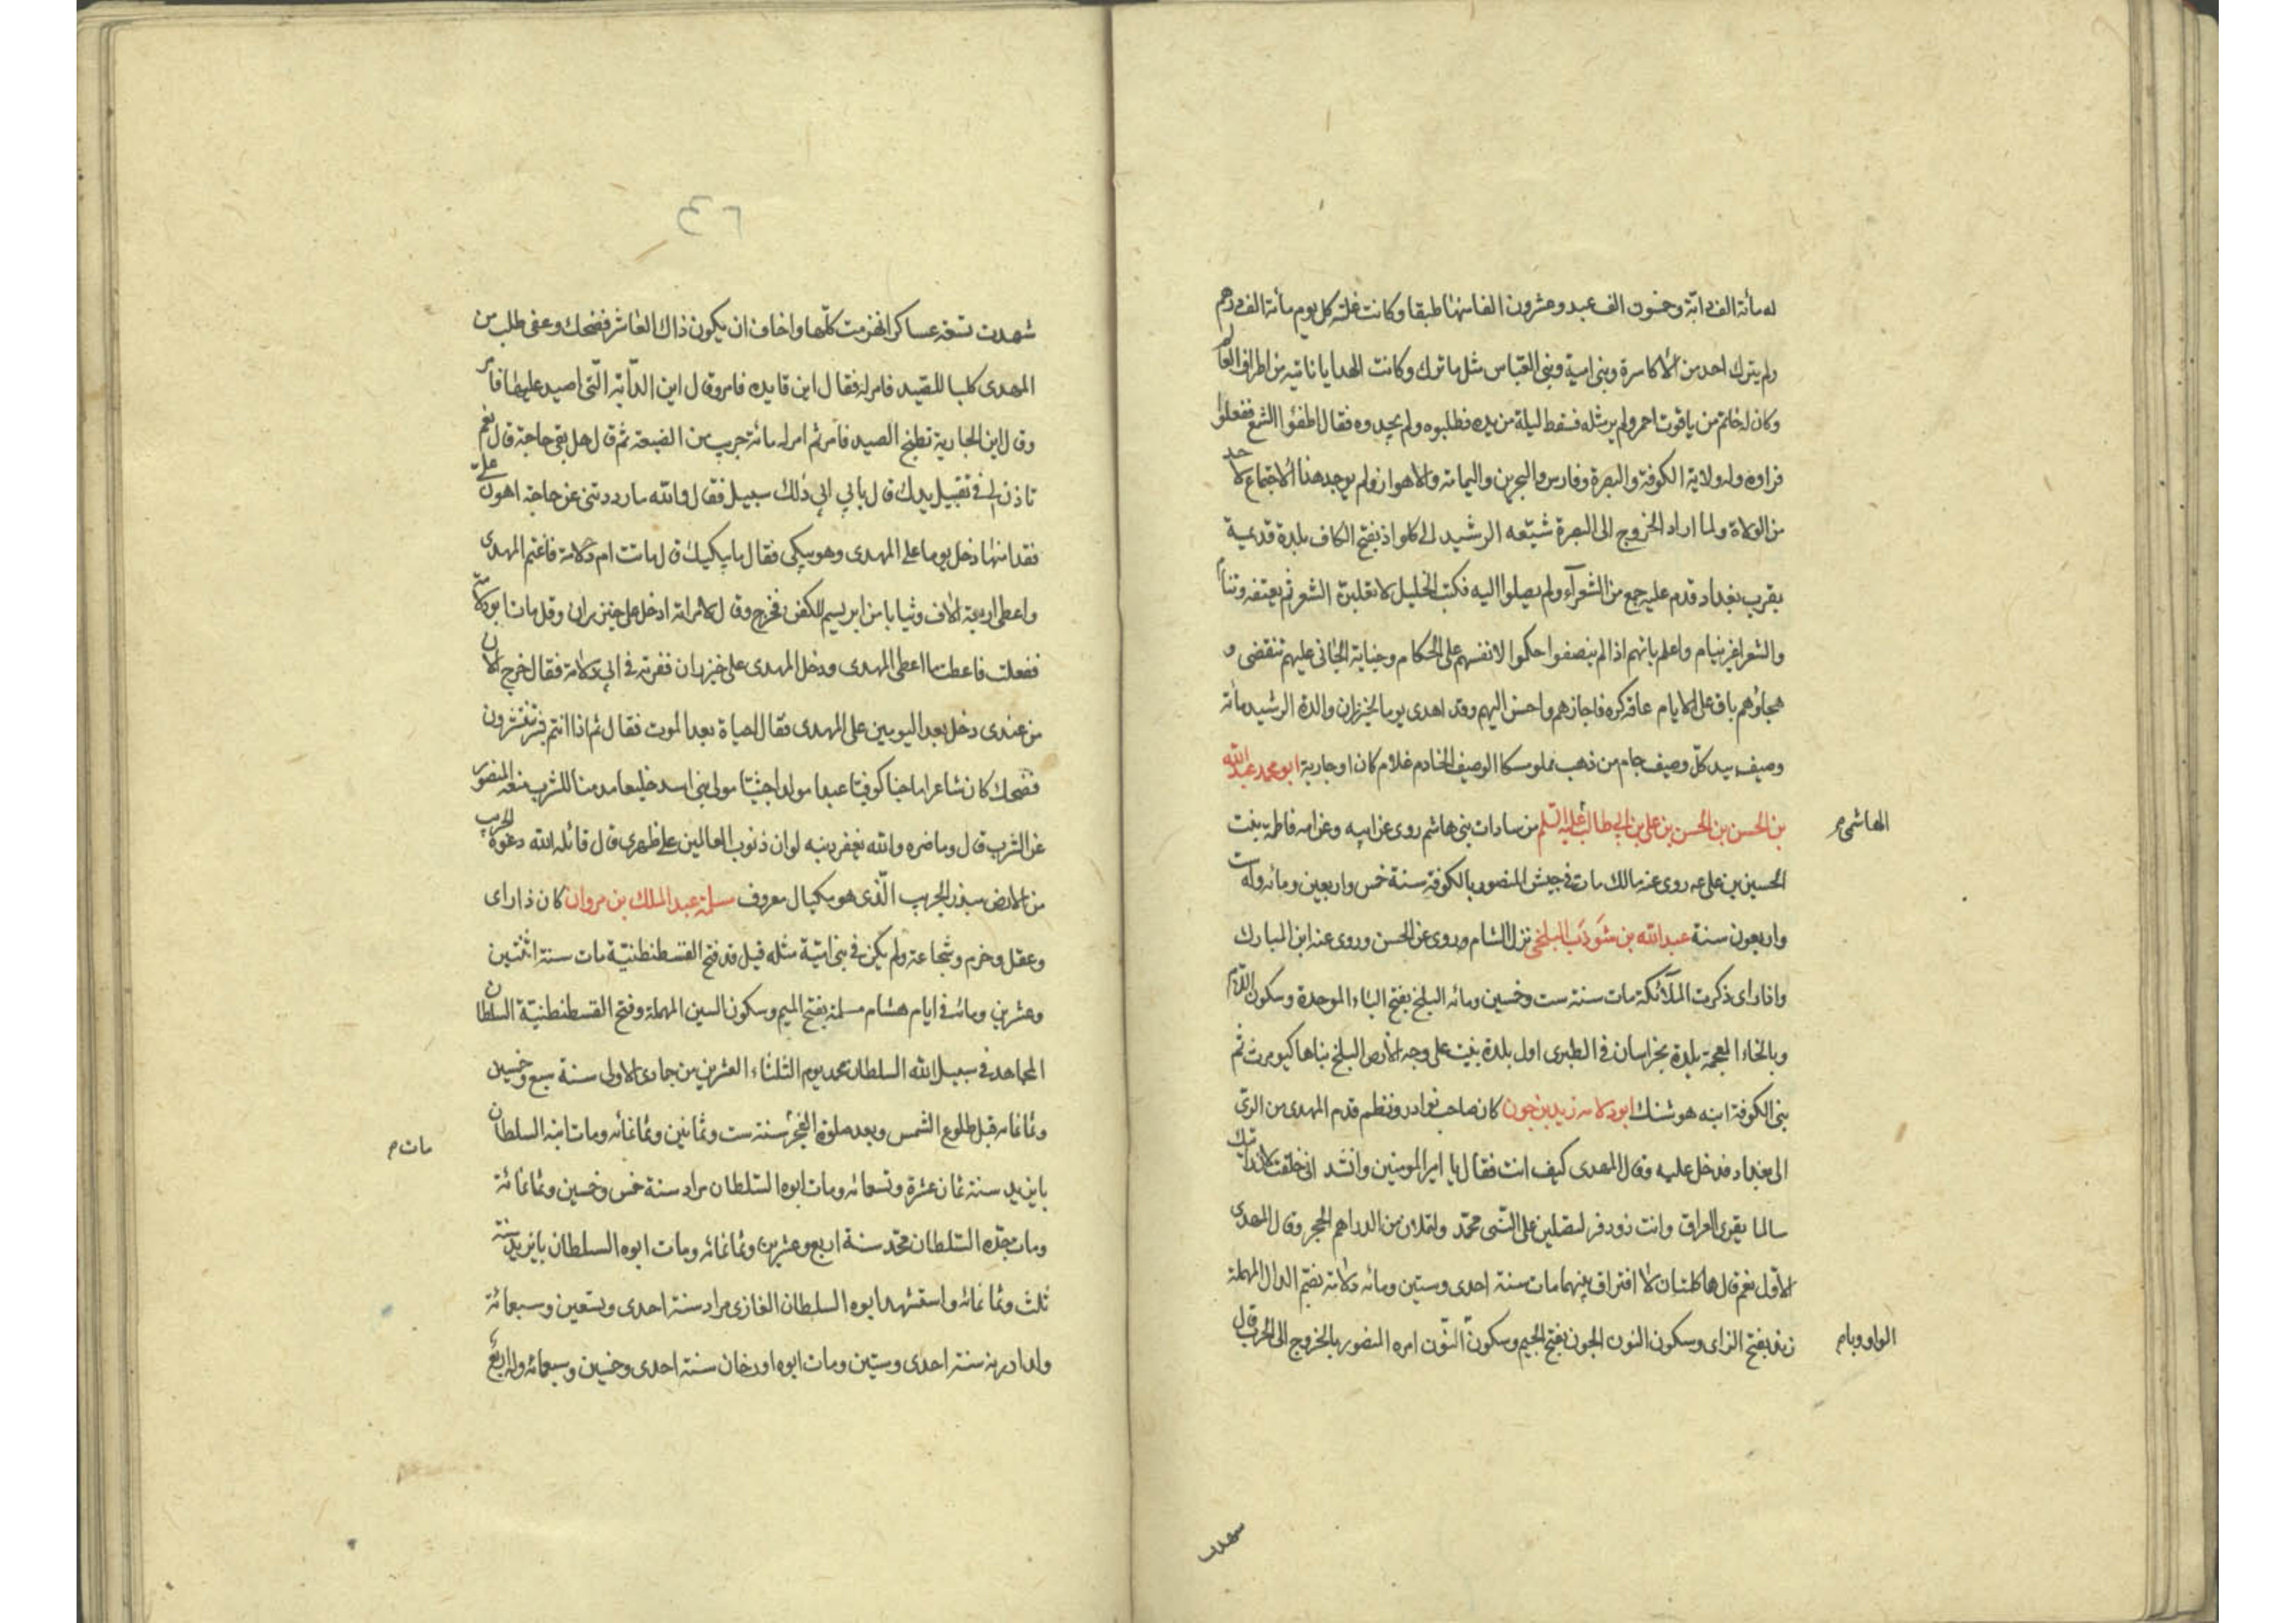 له مأنة الف دابّة وخمسون الف عبد وعشرون الفا منها طبقا وكانت غلته كل يوم مأنة الف درهم
ولم يترك احد من الاكاسرة وبنى امية وبنى العباس مثل ما ترك وكانت الهدايا تاتيه من اطراف العالم
وكان له خاتم من ياقوت احمر ولم ير مثله فسقط ليلة من يده فطلبوه ولم يجدوه فقال اطفئوا الشمع ففعلوا
فراوه وله ولاية الكوفة والبصرة وفارس والبحرين واليمامة والاهواز ولم يوجد هذا الاجتماع لاحد
من الولاة ولما اراد الخروج الى البصرة شيّعه الرشيد الى كلواذ بفتح الكاف بلدة قديمة
بقرب بغداد قدم عليه جمع من الشعرآء ولم يصلوا اليه فكتب الخليل لا تقلبن الشعر ثم يعتفه وتنام
والشعرا غير نيام واعلم بانهم اذا لم ينصفوا حكموا لانفسهم على الحكام وجناية الجانى عليهم تنقضى و
هجاؤهم باق على الايام عاقه كره فاجازهم واحسن اليهم وقد اهدى يوما لخيزران والدة الرشيد مائة
وصيف بيد كلّ وصيف جام من ذهب مملو مسكا الوصيف الخادم غلام كان او جارية ابو محمد عبد الله
بن الحسن بن الحسن بن على بن ابى طالب عليه السلم من سادات بنى هاشم روى عن ابيه وعن امه فاطمة بنت
الهاشمى م
الحسين بن على عه روى عنه مالك مات فى جيش المنصور بالكوفة سنة خمس واربعين ومائه وله ست
واربعون سنة عبد الله بن شوذب البلخى نزل الشام وروى عن الحسن وروى عنه ابن المبارك
واذا راى ذكرت الملآئكة مات سنة ست وخمسين ومائه البلخ بفتح الباء الموحدة وسكون اللام
وبالخاء المعجمة بلدة بخراسان فى الطبرى اول بلدة بنيت على وجه الأرض البلخ بناها كيومرث ثم
بنى الكوفة ابنه هوشنك ابو دلامه زيد بن جون كان صاحب نوادر ونظم قدم المهدى من الرىّ
الى بغداد فدخل عليه وقال المهدى كيف انت فقال يا امير المومنين وانشد انى خلقت لان رايتك
سالما بقرى العراق وانت ذو وفر لتصلين على النّبى محمّد ولتملان من الدراهم الحجر وقال المهدى
الاوّل نعم قال هما كلمتان لا افتراق بينهما مات سنة احدى وستين ومائه دلامة بضم الدال المهملة
زند بفتح الزاى وسكون النون الجون بفتح الجيم وسكون النّون امره المنصور بالخروج الى الحرب قال
الواو وبا م
شهدت
٤٦
شهدت تسعة عساكر انهزمت كلّها واخاف ان يكون ذاك العاشر فضحك وعفى طلب من
المهدى كلبا للصيد فامر له فقال اين قايده فامر وقال اين الدآبّة الّتى اصيد عليها فامر
وقال اين الجارية تطبخ الصيد فامر ثم امر له مائة جريب من الضيعة ثم قال هل بقى حاجة قال نعم
تاذن لى فى تقبيل يدك قال يابى الى ذلك سبيل فقال والله ما رددتنى عن حاجة اهون علىّ
فقدا منها دخل يوما على المهدى وهو يبكى فقال ما يبكيك قال ماتت ام دلامة فاغتم المهدى
واعطى اربعة الاف وثيابا من ابريسم للكفن فخرج وقال لامراته ادخلى على خيزران وقل مات ابو دلامة
ففعلت فاعطت ما اعطى المهدى ودخل المهدى على خيزران فعزته فى ابى دلامة فقال خرج الان
من عندى دخل بعد اليومين على المهدى فقال الحياة بعد الموت فقال ثم اذا انتم بشر تنتشرون
فضحك كان شاعرا ماجنا كوفيّا عبدا مولدا حبشيّا مولى بنى اسد خليعا مدمنا للشرب منعه المنصور
عن الشرب قال وما ضره والله يغفر ذنبه لو ان ذنوب العالمين على ظهرى قال قاتله الله دعوه الجريب
من الارض مبذر الجريب الّذى هو مكيال معروف مسلمة عبد الملك بن مروان كان ذا راى
وعقل وحزم وشجاعة ولم يكن فى بنى اميّة مثله قيل قد فتح القسطنطنيّة مات سنة اثنتين
وعشرين ومائه فى ايام هشام مسلمة بفتح الميم وسكون السين المهملة وفتح القسطنطنيّة السلطان
المجاهد فى سبيل الله السلطان محمد يوم الثلثاء العشرين من جمادى الاولى سنة سبع وخمسين
وثمانمائه قبل طلوع الشمس وبعد صلوة الفجر سنة ست وثمانين وثمانمائه ومات ابنه السلطان
مات م
بايزيد سنة ثمان عشرة وتسعمائه ومات ابوه السّلطان مراد سنة خمس وخمسين وثمانمائة
ومات جدّه السّلطان محمّد سنة اربع وعشرين وثمانمائه ومات ابوه السلطان بايزيد سنة
ثلث وثمانمائه واستشهد ابوه السلطان الغازى مراد سنة احدى وتسعين وسبعمائة
ولد ادرنه سنة احدى وستين ومات ابوه اورخان سنة احدى وخمسين وسبعمائه وله اربع